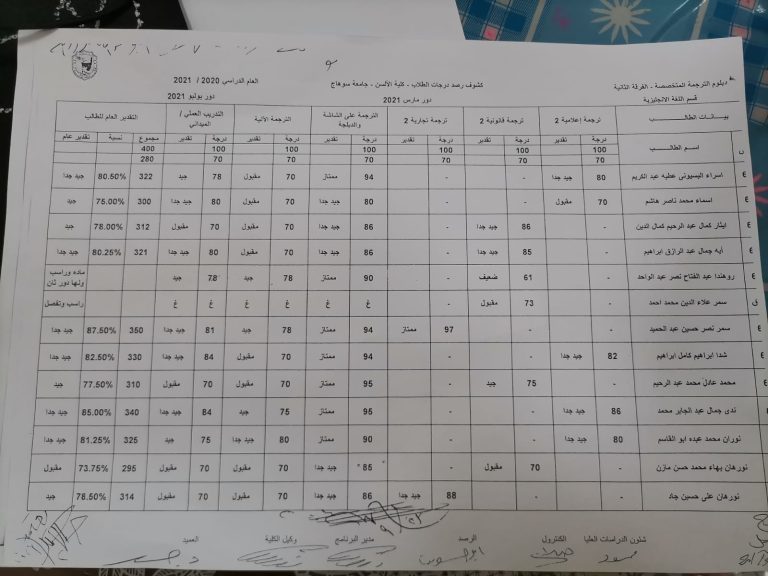 دبلوم الترجمة المتخصصة - الفرقة الثانية
كشوف رصد درجات الطلاب - كلية الألسن - جامعة سوهاج
العام الدراسي 2020 / 2021
قسم اللغة الانجليزية
دور مارس 2021
دور يوليو 2021
بيانات الطالب ترجمة إعلامية 2 ترجمة قانونية 2 ترجمة تجارية 2 الترجمة على الشاشة والدبلجة الترجمة الآلية التدريب العملي / الميداني التقدير العام للطالب
اسم الطالب درجة تقدير درجة تقدير درجة تقدير درجة تقدير درجة تقدير درجة تقدير مجموع نسبة تقدير عام
100 100 100 100 100 100 400
70 70 70 70 70 70 280
اسراء البسيوني عطيه عبد الكريم 80 جيد جدا - - 94 ممتاز 70 مقبول 78 جيد 322 80.50% جيد جدا
اسماء محمد ناصر هاشم 70 مقبول - - 80 جيد جدا 70 مقبول 80 جيد جدا 300 75.00% جيد
ايثار كمال عبد الرحيم كمال الدين - 86 جيد جدا - 86 جيد جدا 70 مقبول 70 مقبول 312 78.00% جيد
آيه جمال عبد الرازق ابراهيم - 85 جيد جدا - 86 جيد جدا 70 مقبول 80 جيد جدا 321 80.25% جيد جدا
روهندا عبد الفتاح نصر عبد الواحد - 61 ضعيف - 90 ممتاز 78 جيد 78 جيد ماده وراسب ولها دور ثان
سمر علاء الدين محمد احمد - 73 مقبول - غ غ غ غ غ غ راسب وتفصل
سمر نصر حسين عبد الحميد - - 97 ممتاز 94 ممتاز 78 جيد 81 جيد جدا 350 87.50% جيد جدا
شدا ابراهيم كامل ابراهيم 82 جيد جدا - - 94 ممتاز 70 مقبول 84 جيد جدا 330 82.50% جيد جدا
محمد عادل محمد عبد الرحيم - 75 جيد - 95 ممتاز 70 مقبول 70 مقبول 310 77.50% جيد
ندى جمال عبد الجابر محمد 86 جيد جدا - - 95 ممتاز 75 جيد 84 جيد جدا 340 85.00% جيد جدا
نوران محمد عبده ابو القاسم 80 جيد جدا - - 90 ممتاز 80 جيد جدا 75 جيد 325 81.25% جيد جدا
نورهان بهاء محمد حسن مازن - 70 مقبول - 85 جيد جدا 70 مقبول 70 مقبول 295 73.75% مقبول
نورهان علي حسين جاد - - 88 جيد جدا 86 جيد جدا 70 مقبول 70 مقبول 314 78.50% جيد
شئون الدراسات العليا الكنترول الرصد مدير البرنامج وكيل الكلية العميد